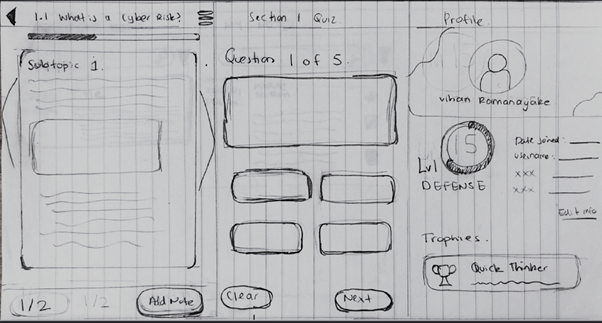 1.1 What is a Cyber Risk?
Subtopic 1.
1/2
1/2
Add Note
Section 1 Quiz
Question 1 of 5.
Clear
Next
Profile
Vihan Ramanayake
15
Lvl
DEFENSE
Date joined:
username:
xxx
xxx
Edit info
Trophies.
Quick Thinker